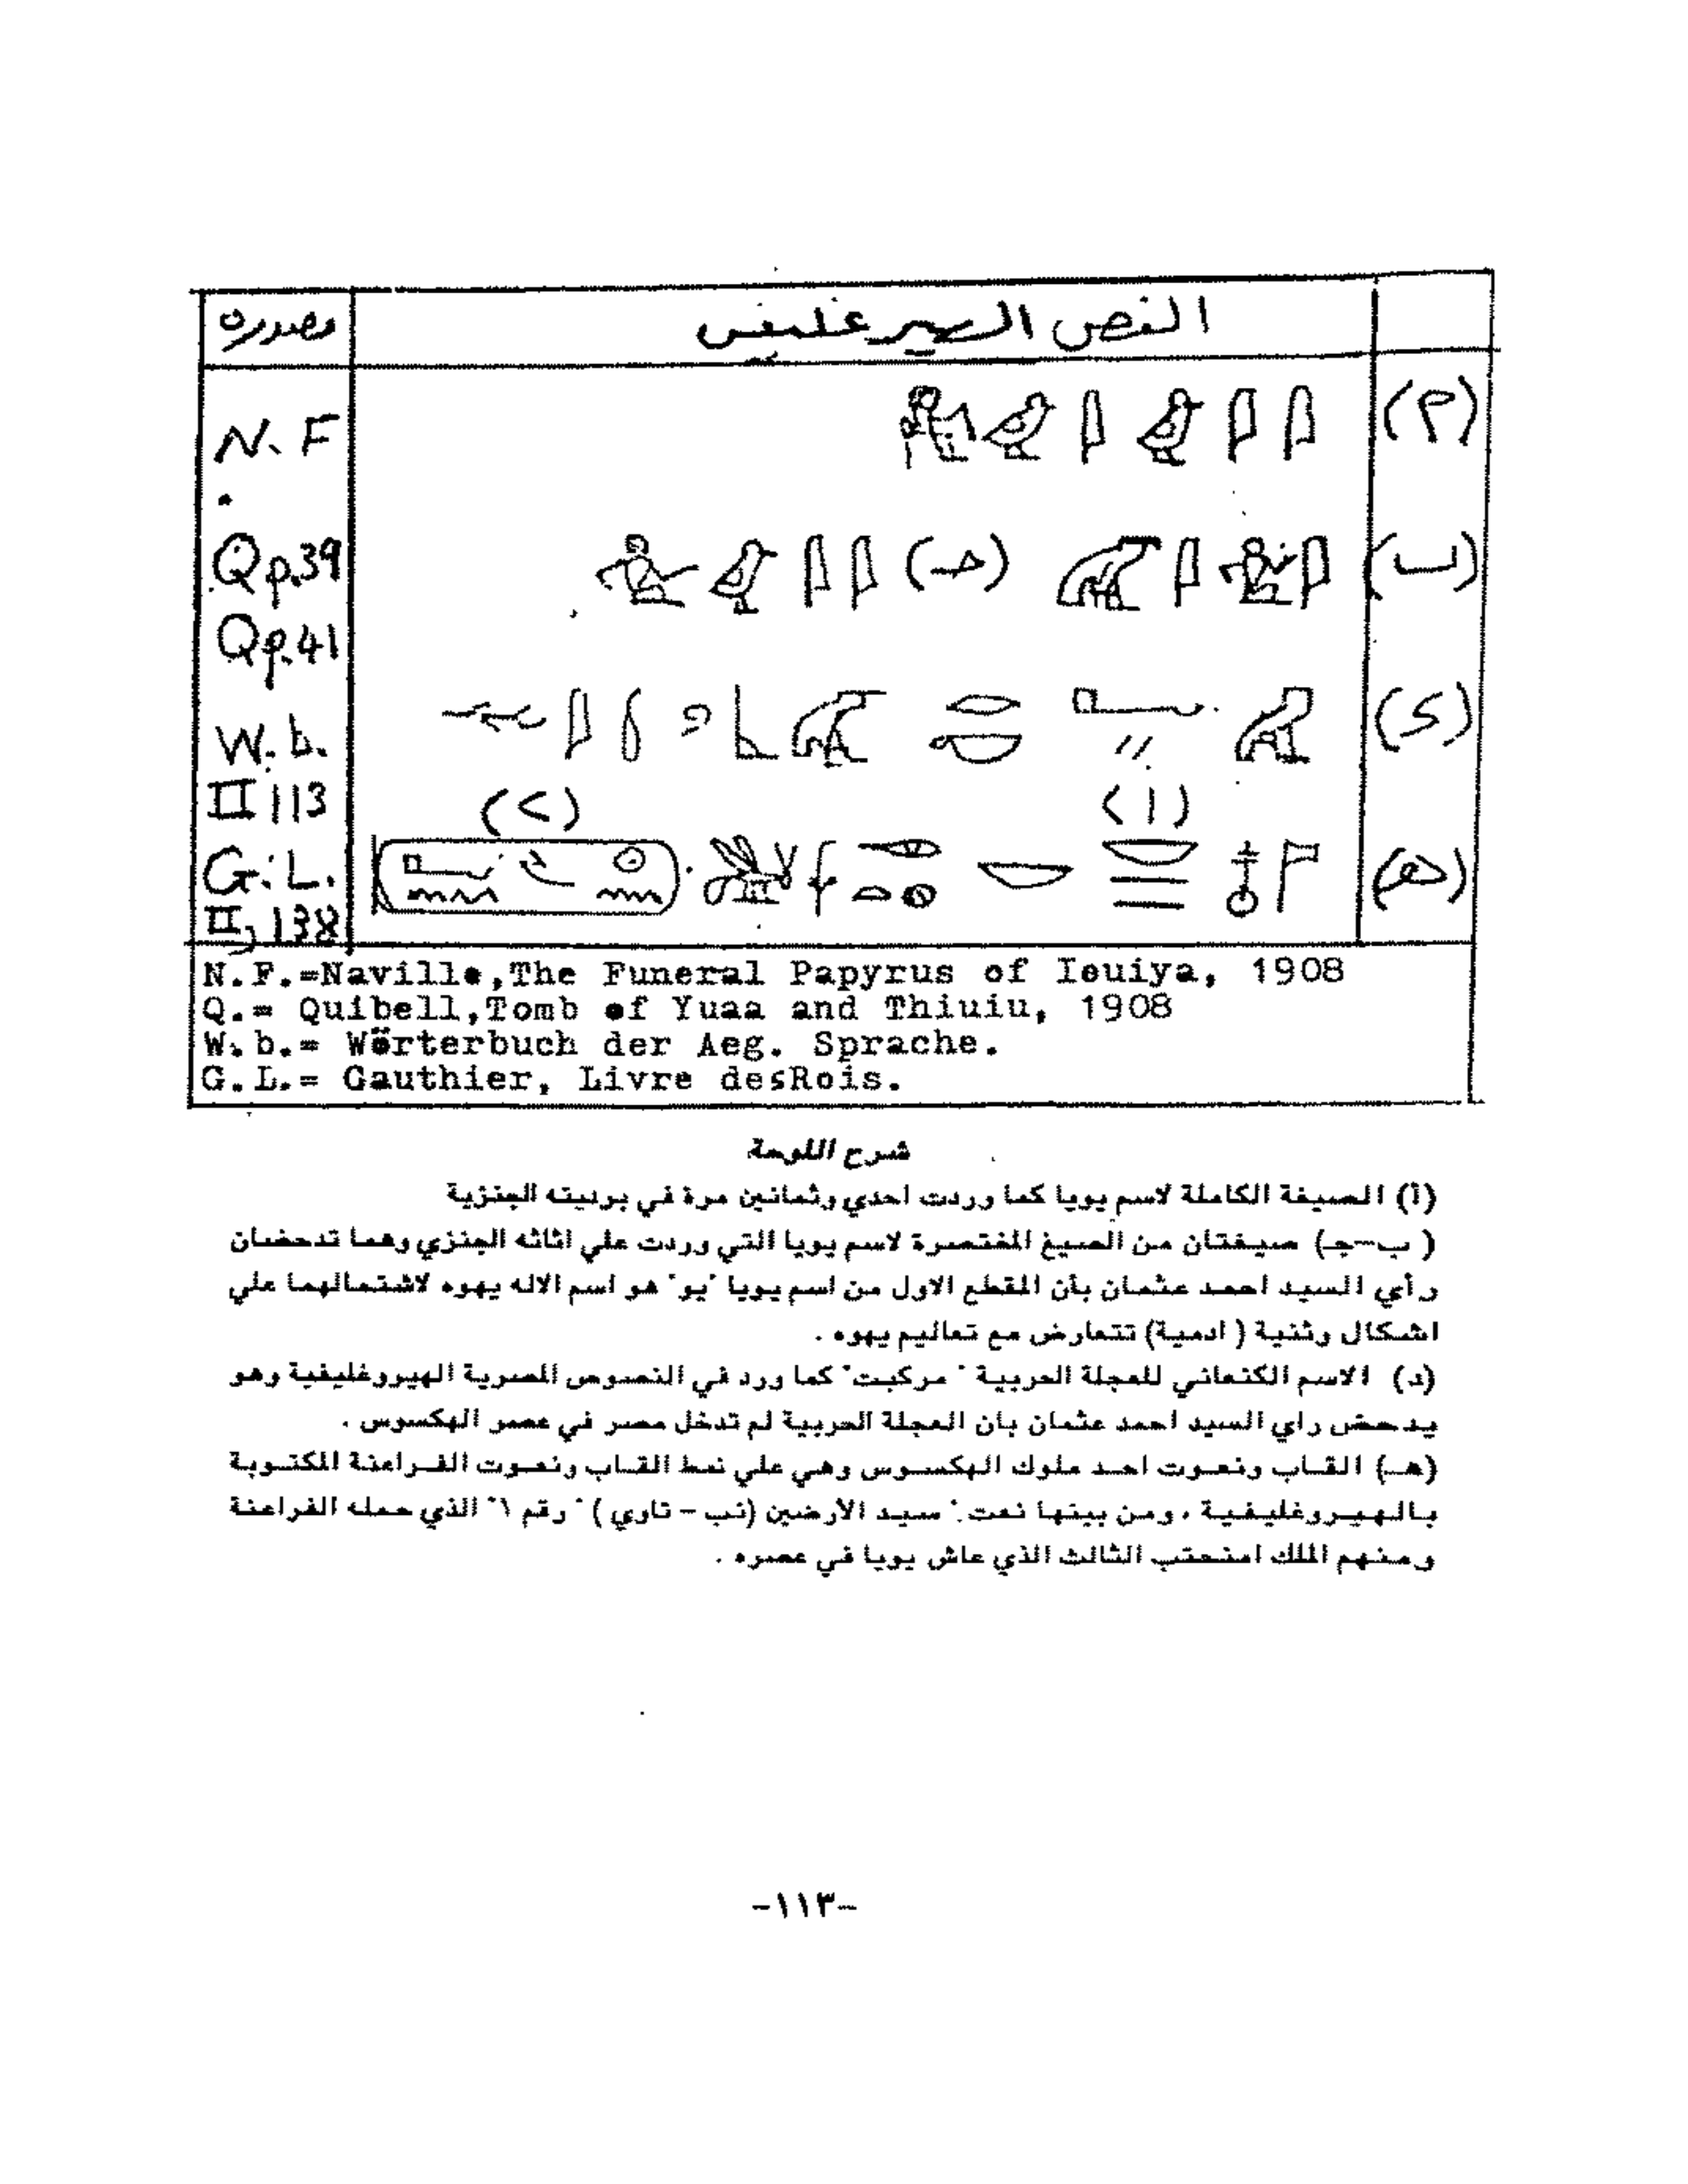 النص الهيرغليفي مصدره
(أ) N. F
(ب) (حـ) Qp.39
Qp.41
(د) W. b.
II 113
(١) (٢)
(هـ) G. L.
II, 138
N.F.=Naville,The Funeral Papyrus of Iouiya, 1908
Q.= Quibell,Tomb of Yuaa and Thiuiu, 1908
W.b.= Wörterbuch der Aeg. Sprache.
G.L.= Gauthier, Livre desRois.
شرح اللوحة
(أ) الصيغة الكاملة لاسم يويا كما وردت احدي وثمانين مرة في برديته الجنزية
( ب–جـ) صيغتان من الصيغ المختصرة لاسم يويا التي وردت علي اثاثه الجنزي وهما تدحضان
رأي السيد احمد عثمان بأن المقطع الاول من اسم يويا "يو" هو اسم الاله يهوه لاشتمالهما علي
اشكال وثنية ( ادمية) تتعارض مع تعاليم يهوه .
(د) الاسم الكنعاني للعجلة الحربية " مركبت" كما ورد في النصوص المصرية الهيروغليفية وهو
يدحض راي السيد احمد عثمان بان العجلة الحربية لم تدخل مصر في عصر الهكسوس .
(هـ) القاب ونعوت احد ملوك الهكسوس وهي علي نمط القاب ونعوت الفراعنة المكتوبة
بالهيروغليفية ، ومن بينها نعت " سيد الأرضين (نب – تاوي ) " رقم ١" الذي حمله الفراعنة
ومنهم الملك امنحتب الثالث الذي عاش يويا في عصره .
-١١٣-